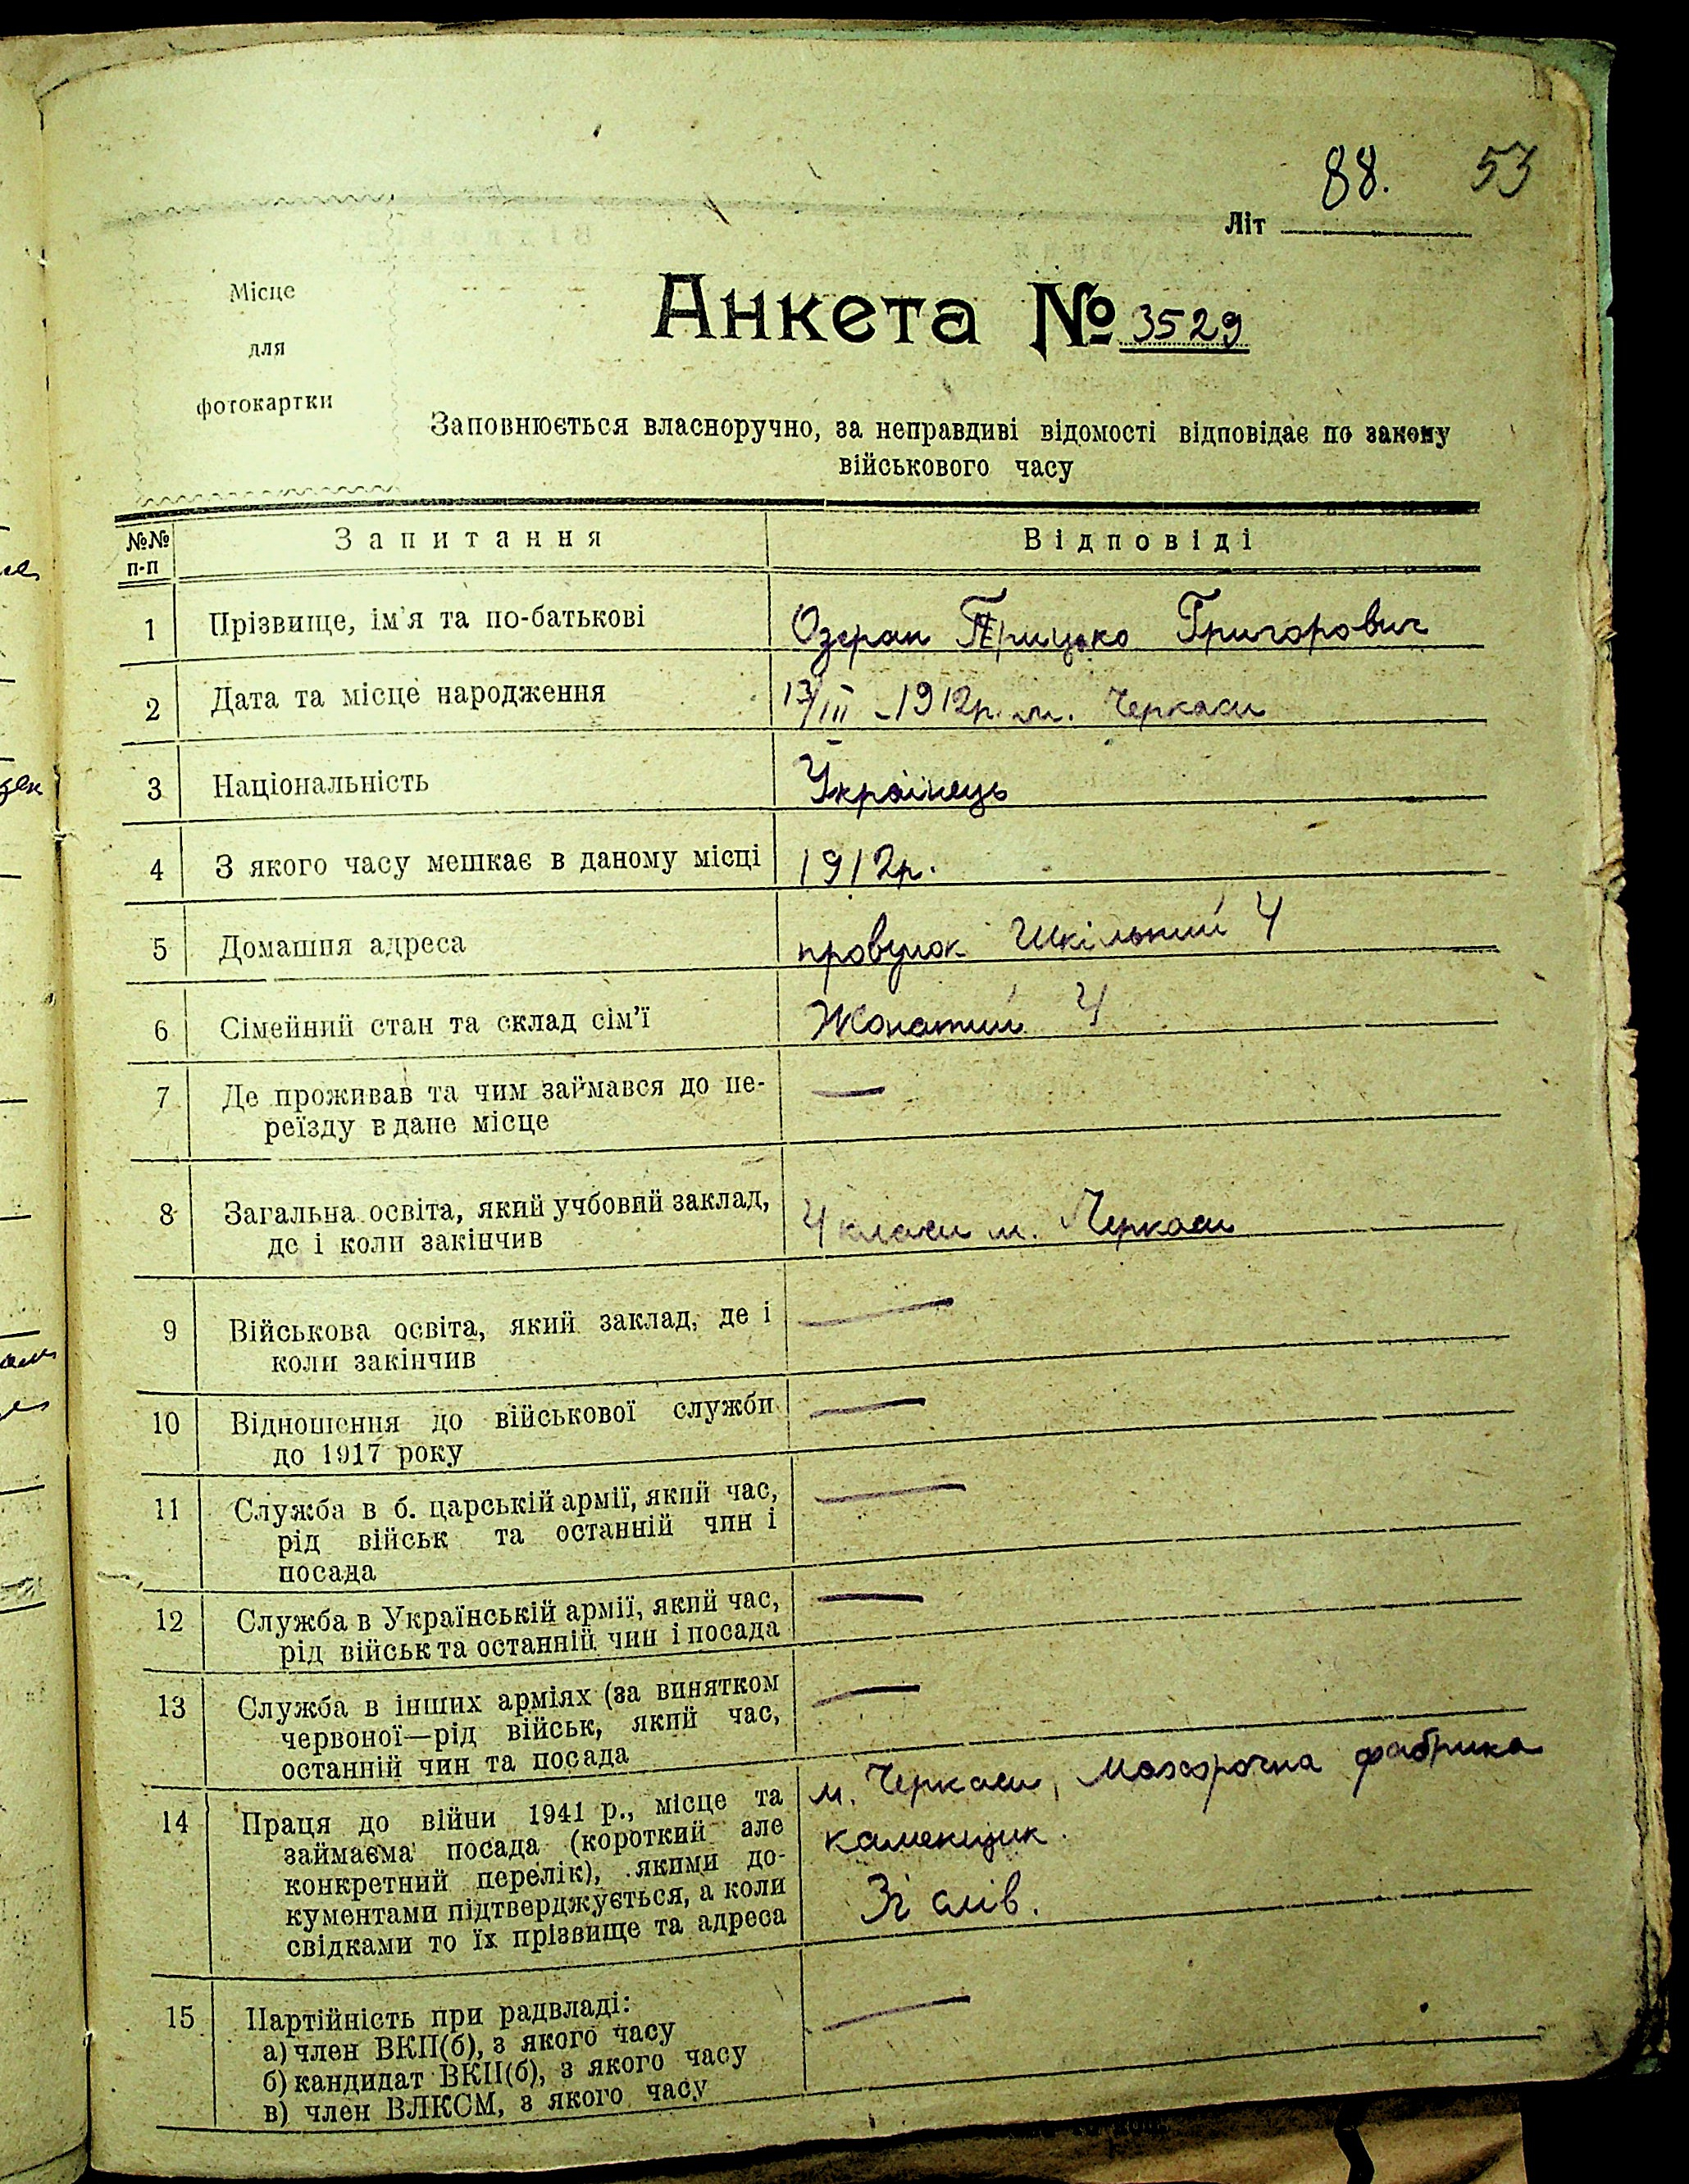 88. 53
Літ
Місце
для
фотокартки
Анкета № 3529
Заповнюється власноручно, за неправдиві відомості відповідає по закону
військового часу
№№ п-п Запитання Відповіді
1 Прізвище, ім'я та по-батькові Озеран Грицько Григорович
2 Дата та місце народження 13/III -1912р. м. Черкаси
3 Національність Українець
4 З якого часу мешкає в даному місці 1912р.
5 Домашня адреса провулок Шкільний 4
6 Сімейний стан та склад сім'ї Жонатий 4
7 Де проживав та чим займався до пе- —
реїзду в дане місце
8 Загальна освіта, який учбовий заклад, 4 класи м. Черкаси
де і коли закінчив
9 Військова освіта, який заклад, де і —
коли закінчив
10 Відношення до військової служби —
до 1917 року
11 Служба в б. царській армії, який час, —
рід військ та останній чин і
посада
12 Служба в Українській армії, який час, —
рід військ та останній чин і посада
13 Служба в інших арміях (за винятком —
червоної—рід військ, який час,
останній чин та посада
14 Праця до війни 1941 р., місце та м. Черкаси, Махорочна фабрика
займаєма посада (короткий але каменщик.
конкретний перелік), якими до-
кументами підтверджується, а коли Зі слів.
свідками то їх прізвище та адреса
15 Партійність при радвладі: —
а) член ВКП(б), з якого часу
б) кандидат ВКП(б), з якого часу
в) член ВЛКСМ, з якого часу